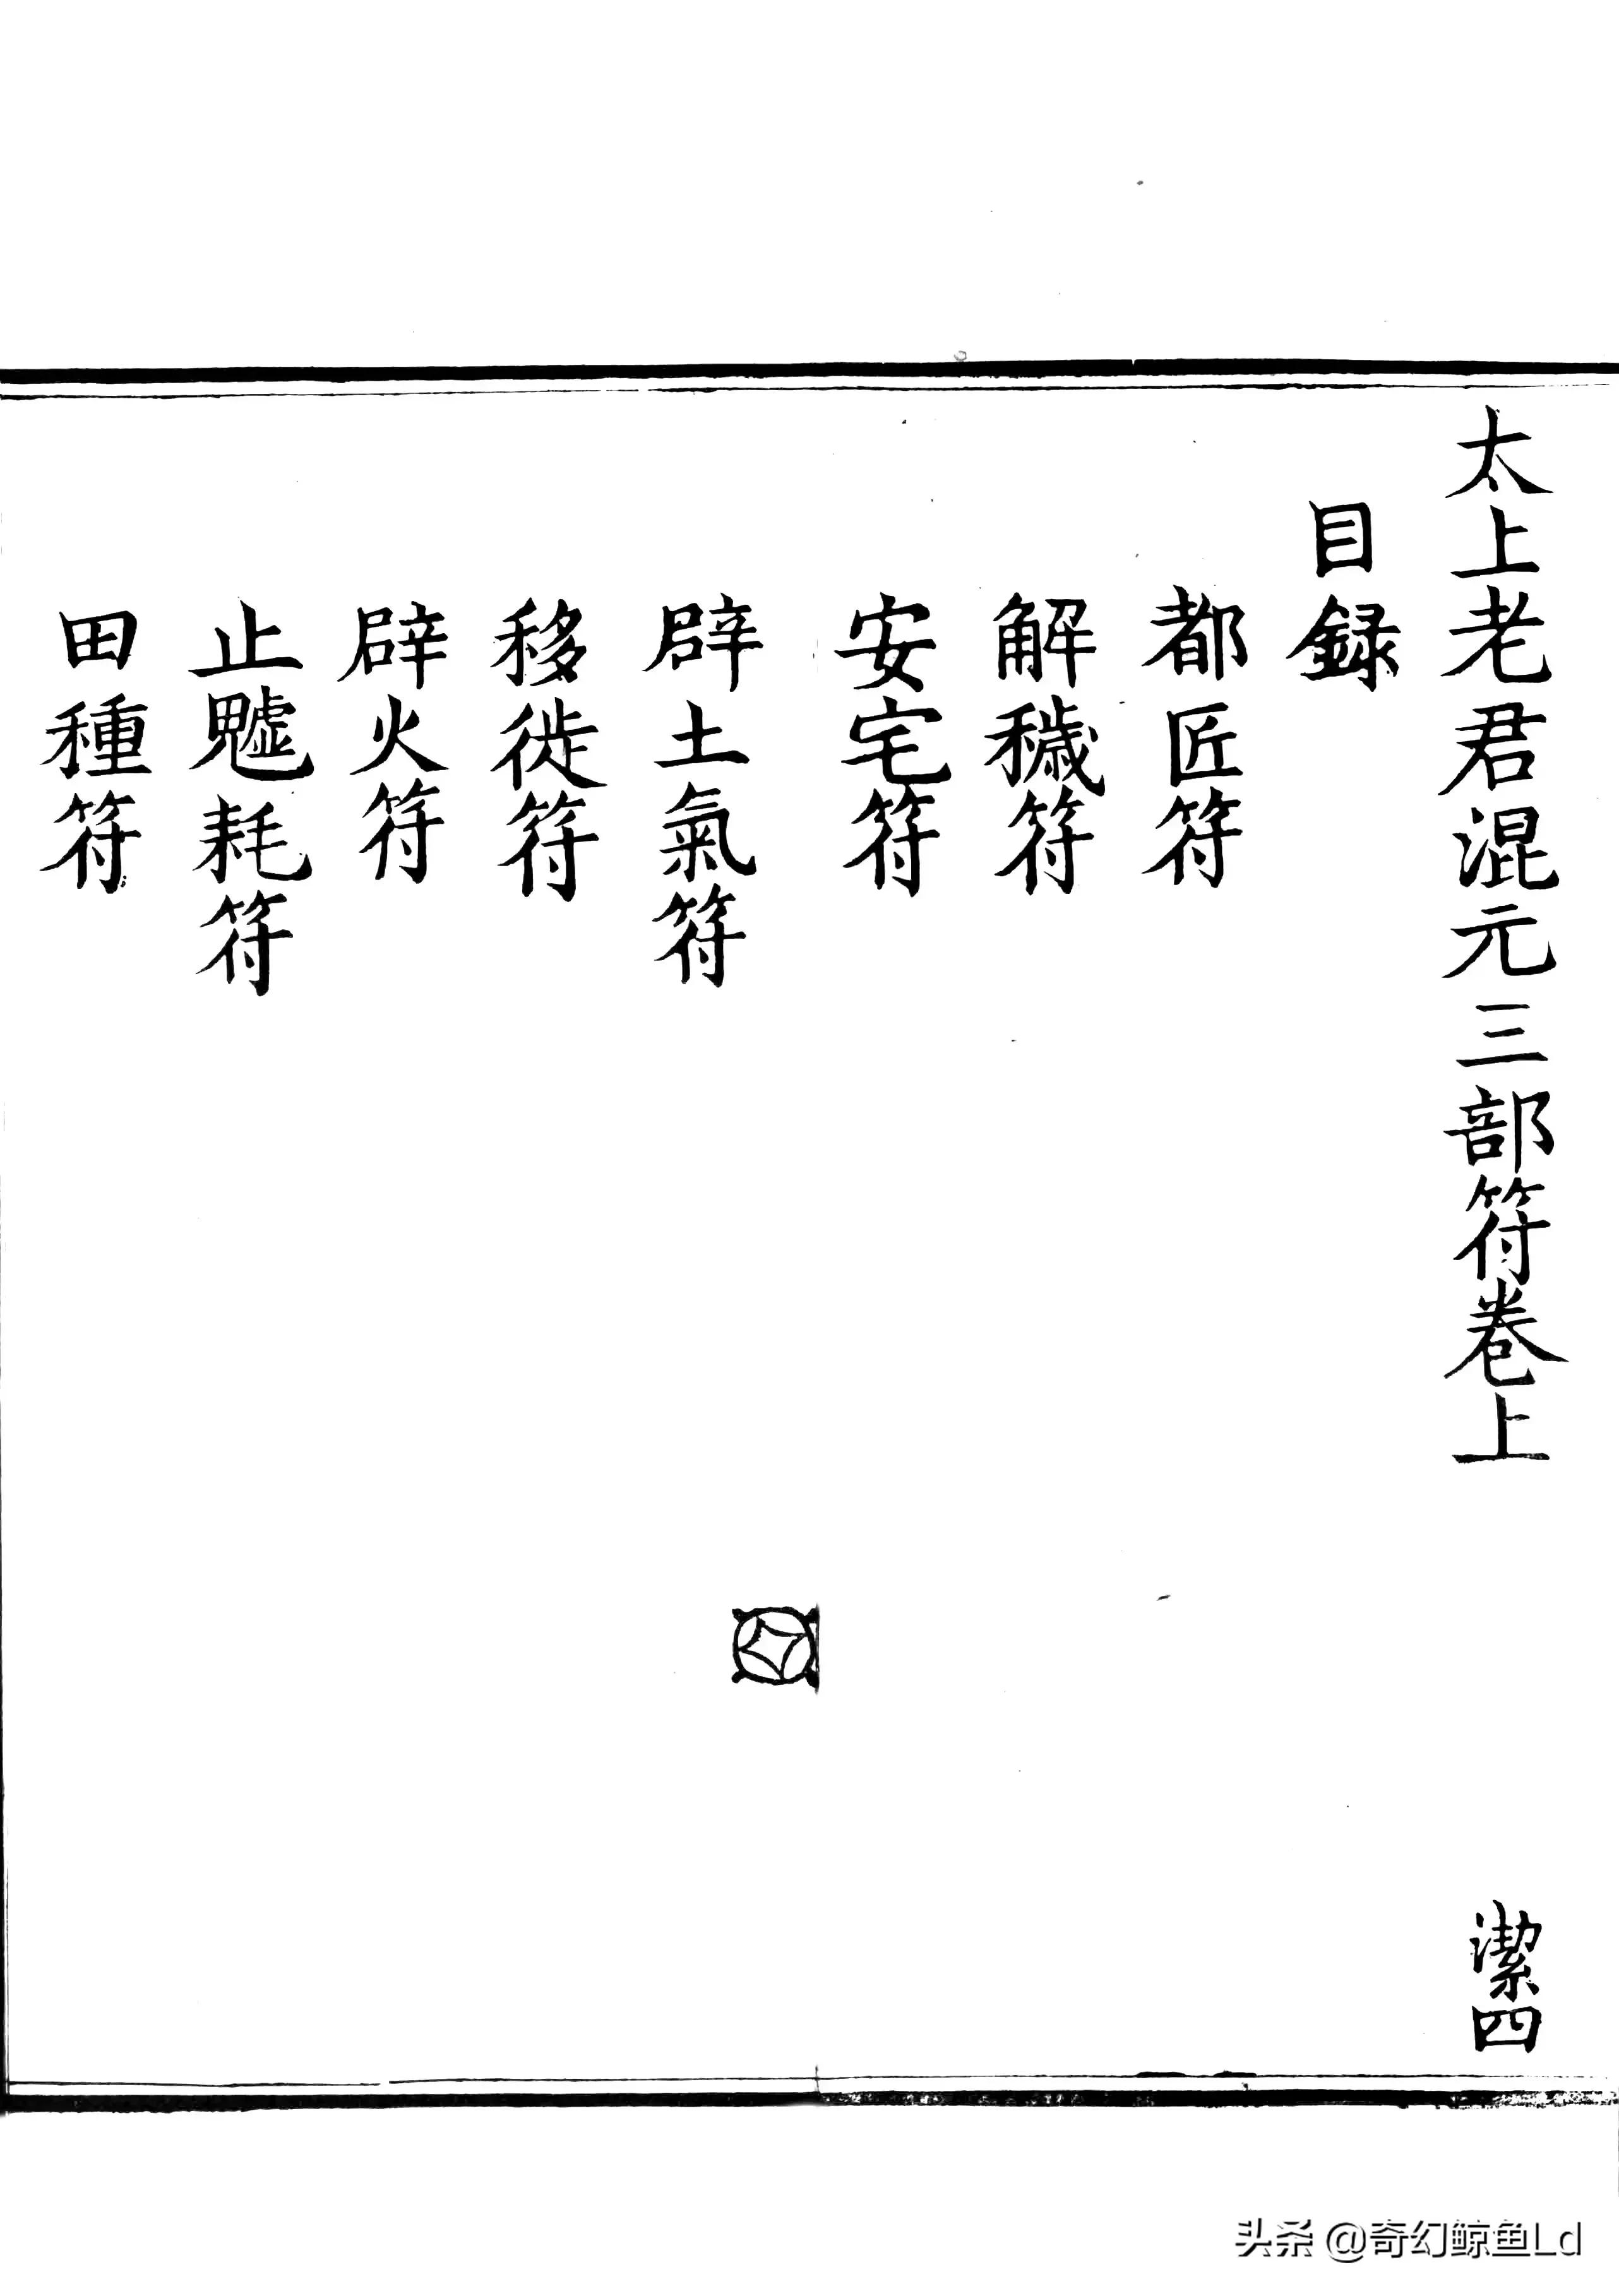 太上老君混元三部符卷上
潔四
目録
都匠符
解穢符
安宅符
辟土氣符
移徙符
辟火符
止魖耗符
田種符
头条 @奇幻鲸鱼Ld